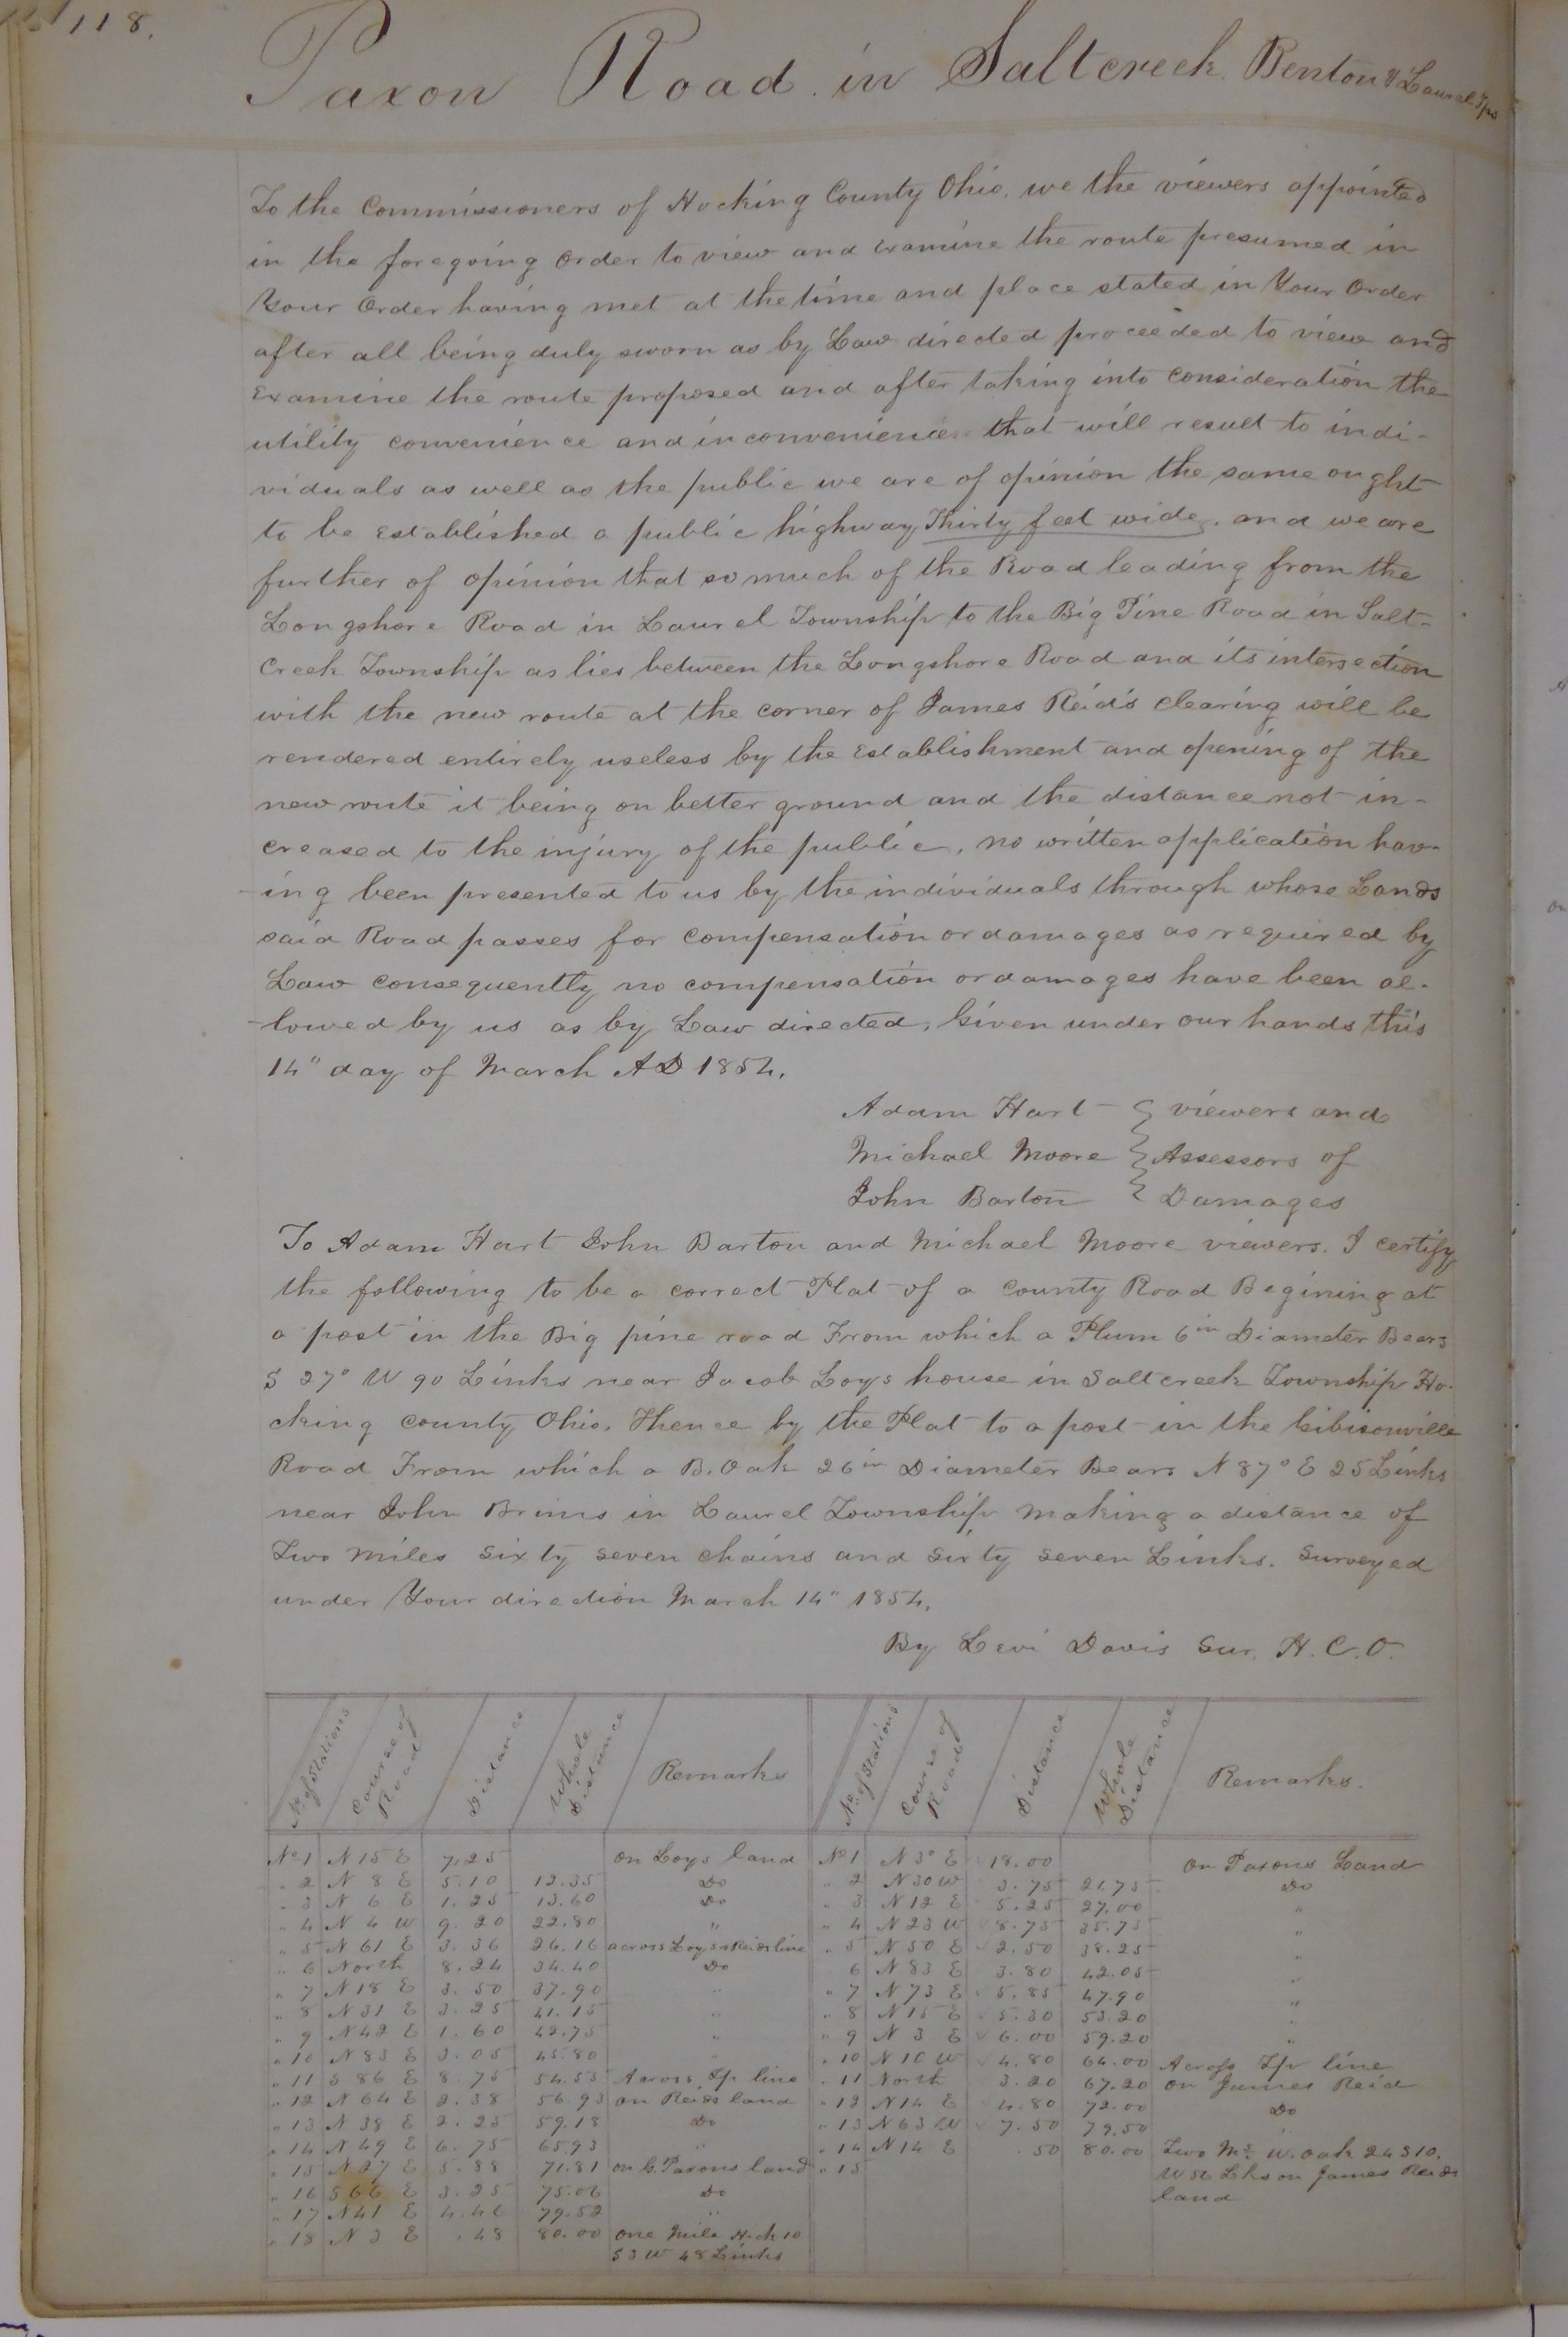 118.
Paxon Road in Saltcreek, Benton & Laurel Tps
To the Commissioners of Hocking County Ohio, we the viewers appointed
in the foregoing Order to view and examine the route presumed in
Your Order having met at the time and place stated in Your Order
after all being duly sworn as by Law directed proceeded to view and
Examine the route proposed and after taking into consideration the
utility convenience and inconvenience that will result to indi-
viduals as well as the public we are of opinion the same ought
to be Established a public highway Thirty feet wide, and we are
further of opinion that so much of the Road leading from the
Longshore Road in Laurel Township to the Big Pine Road in Salt-
Creek Township as lies between the Longshore Road and its intersection
with the new route at the corner of James Reid's clearing will be
rendered entirely useless by the Establishment and opening of the
new route it being on better ground and the distance not in-
creased to the injury of the public, no written application hav-
-ing been presented to us by the individuals through whose Lands
said Road passes for compensation or damages as required by
Law consequently no compensation or damages have been al-
-lowed by us as by Law directed, Given under our hands this
14" day of March AD 1854.
Adam Hart } viewers and
Michael Moore } Assessors of
John Barton } Damages
To Adam Hart John Barton and Michael Moore viewers. I certify
the following to be a correct Plat of a County Road Begining at
a post in the Big pine road From which a Plum 6in Diameter Bears
S 27° W 90 Links near Jacob Loys house in Saltcreek Township Ho-
cking County Ohio, Thence by the Plat to a post in the Gibisonville
Road From which a B. Oak 26in Diameter Bears N 87° E 25 Links
near John Brims in Laurel Township making a distance of
Two miles Sixty seven chains and Sixty seven Links. Surveyed
under Your direction March 14" 1854.
By Levi Davis Sur. H.C.O.
No. of Stations Course of Road Distance Whole Distance Remarks No. of Stations Course of Road Distance Whole Distance Remarks.
No 1 N 15 E 7.25 on Loys land No 1 N 3° E 18.00 on Paxons Land
" 2 N 8 E 5.10 12.35 Do " 2 N 30 W 3.75 21.75 Do
" 3 N 6 E 1.25 13.60 Do " 3 N 12 E 5.25 27.00 "
" 4 N 4 W 9.20 22.80 " " 4 N 23 W 8.75 35.75 "
" 5 N 61 E 3.36 26.16 across Loys & Reids line " 5 N 50 E 2.50 38.25 "
" 6 North 8.24 34.40 Do 6 N 83 E 3.80 42.05 "
" 7 N 18 E 3.50 37.90 " " 7 N 73 E 5.85 47.90 "
" 8 N 31 E 3.25 41.15 " " 8 N 15 E 5.30 53.20 "
" 9 N 42 E 1.60 42.75 " " 9 N 3 E 6.00 59.20 "
" 10 N 83 E 3.05 45.80 " " 10 N 10 W 4.80 64.00 Across Tp line
" 11 S 86 E 8.75 54.55 Across Tp line " 11 North 3.20 67.20 on James Reid
" 12 N 64 E 2.38 56.93 on Reids land " 12 N 14 E 4.80 72.00 Do
" 13 N 38 E 2.25 59.18 Do " 13 N 63 W 7.50 79.50 "
" 14 N 49 E 6.75 65.93 " " 14 N 14 E .50 80.00 Two Ms W. oak 24 S 10.
" 15 N 27 E 5.88 71.81 on G. Paxons land " 15 W 56 Lks on James Reids
" 16 S 66 E 3.25 75.06 Do land
" 17 N 41 E 4.46 79.52 "
" 18 N 3 E .48 80.00 one Mile Hick 10
S 3 W 48 Links